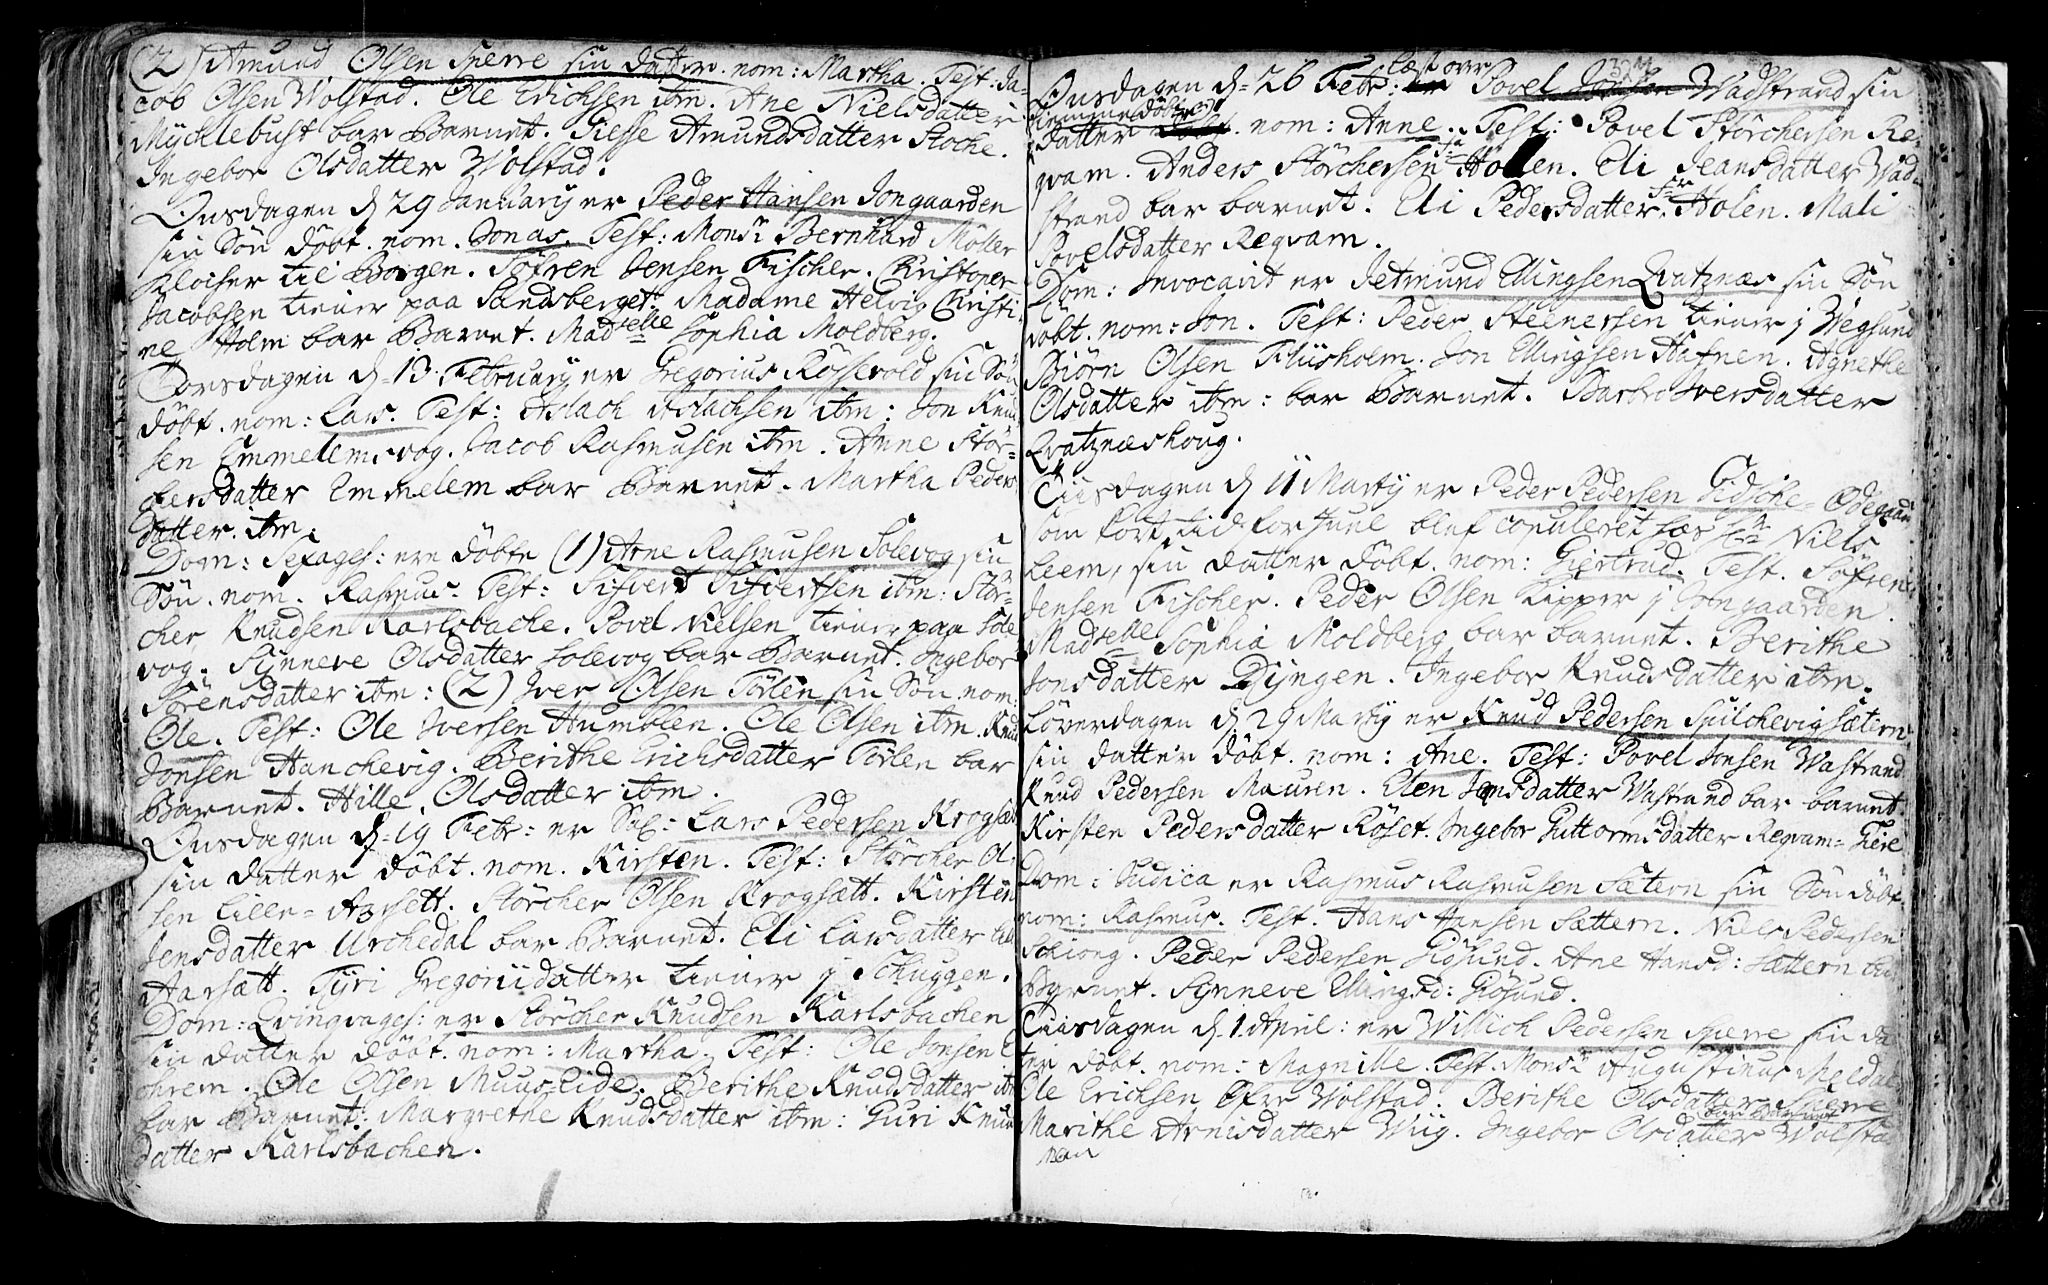 (2) Amund Olsen Sperre sin datter. nom: Martha. Test: Ja-
cob Olsen Wolstad. Ole Erichsen itm. Ane Nielsdatter
Mycklebust bar Barnet. Siesse Amundsdatter Stocke.
Ingebor Olsdatter Wolstad.
Onsdagen d 29 January er Peder Hansen Jongaarden
sin Søn døbt. nom. Jonas. Test: Monsr Bernhard Møller
Kloker til Borgen. Søfren Jensen Fischer. Christopher
Jacobsen tiener paa Sandsberget. Madame Helvig Christi-
ne Holm bar Barnet. Madselle Sophia Moldberg.
Torsdagen d. 13. February er Gregorius Røssevold sin Søn
døbt. nom: Lars. Test: Aslach Aslachsen itm: Jon Knud
sen Emmelemsvog. Jacob Rasmusen itm. Anne Stør-
kersdatter Emmelem bar Barnet. Martha Peders
datter. itm:
Dom: Sexages: ere døbte (1) Arne Rasmusen Solevog sin
Søn. nom. Rasmus. Test: Sifvert Sifvertsen itm: Stør-
cher Knudsen Karlsbache. Povel Nielsen tiener paa Sole
vog. Synneve Olsdatter Solevog bar Barnet. Ingebor
Sørensdatter itm: (2) Iver Olsen Tørlen sin Søn nom:
Ole. Test: Ole Iversen Humblen. Ole Olsen itm. Knud
Jonsen Hanchevig. Berithe Erichsdatter Tørlen bar
Barnet. Hille Olsdatter itm.
Onsdagen d. 19 Febr: er Sal: Lars Pedersen Krogsæt
sin datter døbt. nom. Kirsten. Test: Størcher Ol-
sen Lille-Aarsett. Størcher Olsen Krogsætt. Kirsten
Jensdatter Urchedal bar Barnet. Eli Larsdatter Lill
Aarsætt. Tyri Gregoriidatter tiener j Schuggen.
Dom: Qvinqvages: er Størcher Knudsen Karlsbachen
sin datter døbt. nom: Martha. Test: Ole Jonsen E
chrem. Ole Olsen Muuseide. Berithe Knudsdatter itm
bar Barnet: Margrethe Knudsdatter itm: Guri Knuds
datter Karlsbachen.
læst over
Onsdagen d. 26 Febr: er Povel Wadstrand sin
hiemmedøbte
datter døbt. nom: Anne. Test: Povel Størchersen Re-
qvam. Anders Størchersen Holen. Eli Jeansdatter Wad-
strand bar barnet. Eli Pedersdatter Holen. Mali
Povelsdatter Reqvam.
Dom: Invocavit er Jetmund Ellingsen Qvatznæs sin Søn
døbt. nom: Jon. Test: Peder Steenersen tiener j Wegsund
Biørn Olsen Fliisholm. Jon Ellingsen Hafnen. Agnethe
Olsdatter itm: bar Barnet. Barbro Iversdatter
Qvatznæshoug.
Tiisdagen d 11 Martij er Peder Pedersen Gidsche-Ødegaard
som kort tid for Juul blef copuleret hos Niels
Leem, sin datter døbt. nom: Giertrud. Test. Søfren
Jensen Fischer. Peder Olsen tipper j Jongaarden.
Madselle Sophia Moldberg bar barnet. Berithe
Jonsdatter Dyngen. Ingebor Knudsdatter itm.
Løverdagen d 29 Martij er Knud Pedersen Spilchevigsætern
sin datter døbt. nom: Ane. Test: Povel Jonsen Wastrand.
Knud Pedersen Mauren. Elen Jonsdatter Wastrand bar barnet.
Kirsten Pedersdatter Røset. Ingebor Guttormsdatter Reqvam-Giere
Dom: Judica er Rasmus Rasmusen Sætern sin Søn døbt.
nom: Rasmus. Test. Hans Hansen Sættern. Niels Pedersen
Schiong. Peder Pedersen Giøsund. Ane Hansd: Sættern bar
Barnet. Synneve Ellingsd: Giøsund.
Tiisdagen d. 1 April: er Willich Pedersen Sperre sin dat
ter døbt. nom: Magnille. Test. Monsr Augustinus Meldal
Ole Erichsen Wolstad. Berithe Olsdatter Sperre
bar Barnet
Marithe Arnesdatter Wiig. Ingebor Olsdatter Wolstad